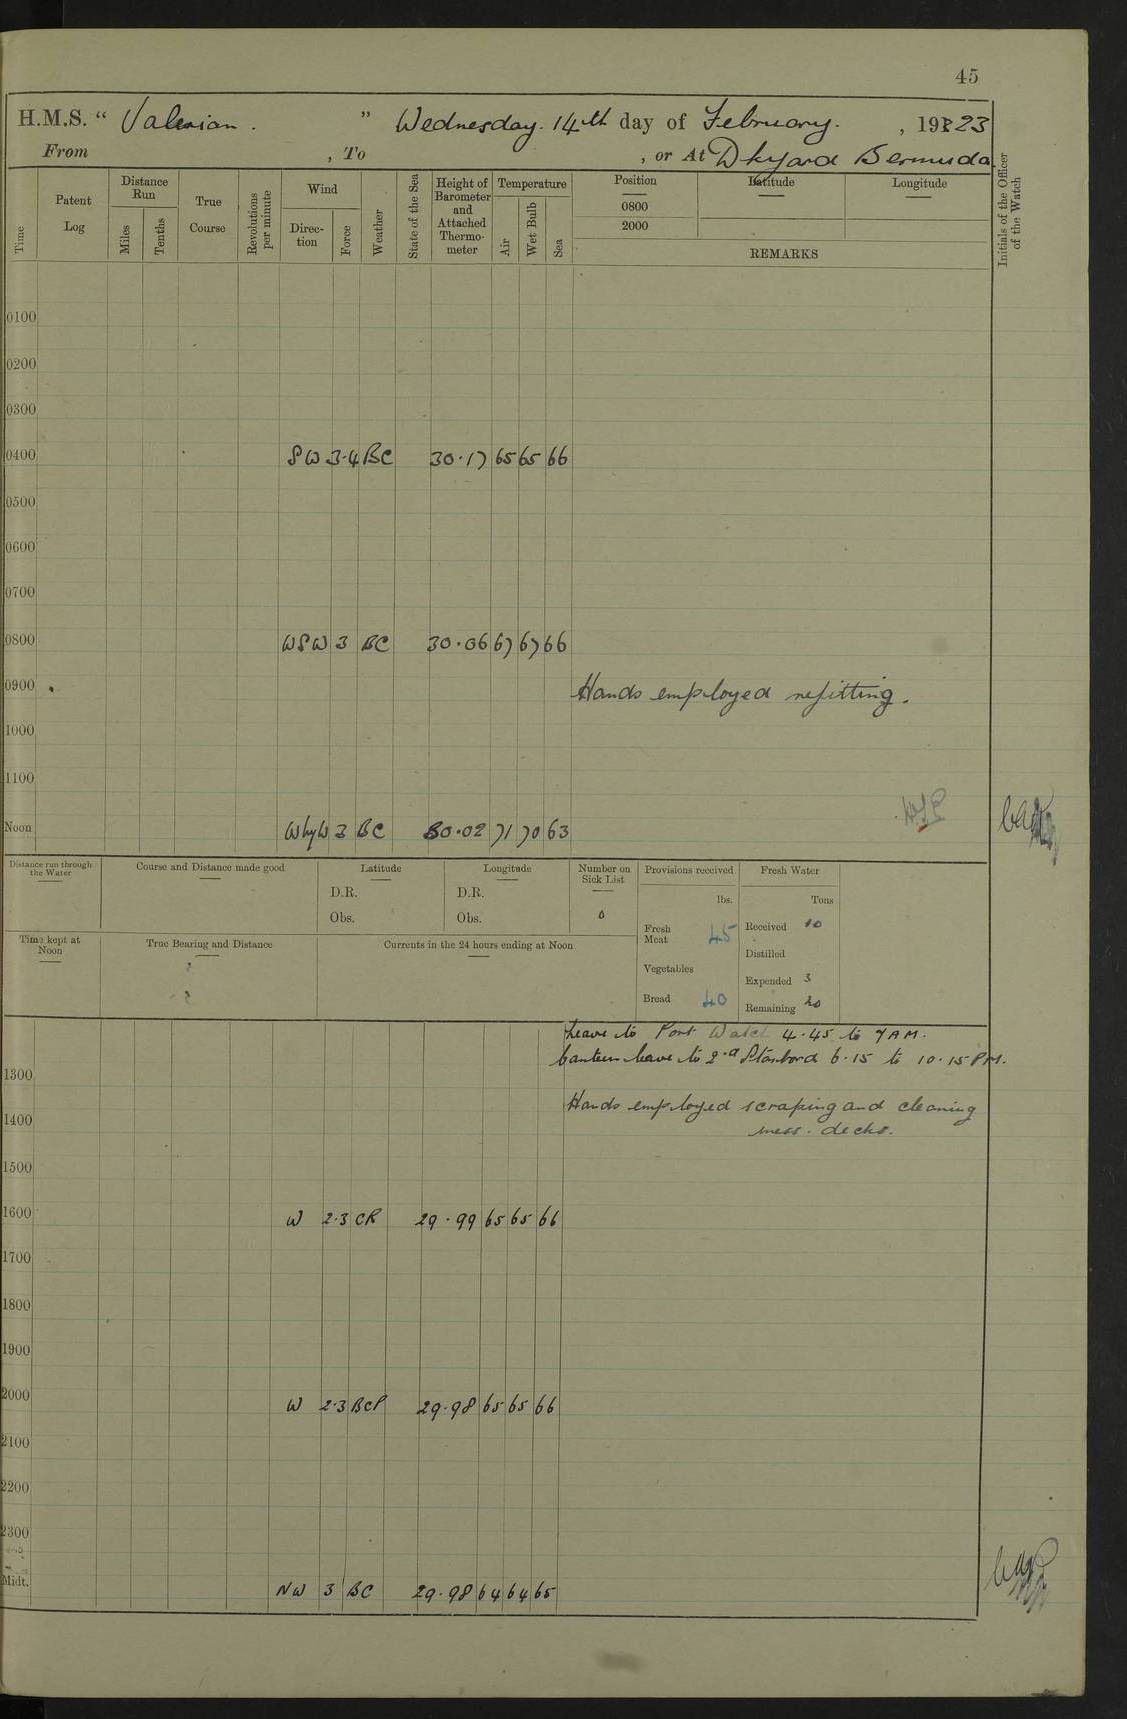 45
H.M.S. “ Valerian. ” Wednesday. 14th day of February. , 1923
From , To , or At Dkyard Bermuda
Time
Patent Log
Distance Run
Miles
Tenths
True Course
Revolutions per minute
Wind
Direction
Force
Weather
State of the Sea
Height of Barometer and Attached Thermometer
Temperature
Air
Wet Bulb
Sea
Position
0800
2000
Latitude
Longitude
REMARKS
Initials of the Officer of the Watch
0100
0200
0300
0400 SW 3.4 BC 30.17 65 65 66
0500
0600
0700
0800 WSW 3 BC 30.06 67 67 66
0900 Hands employed refitting.
1000
1100
Noon WbyW 3 BC 30.02 71 70 63
Distance run through the Water
Course and Distance made good
Latitude
D.R.
Obs.
Longitude
D.R.
Obs.
Number on Sick List
0
Provisions received
lbs.
Fresh Meat 45
Vegetables
Bread 40
Fresh Water
Tons
Received 10
Distilled
Expended 3
Remaining 20
Time kept at Noon
True Bearing and Distance
Currents in the 24 hours ending at Noon
Leave to Port Watch 4.45 to 7 AM.
Canteen leave to 2nd Starbord 6.15 to 10.15 PM.
1300
Hands employed scraping and cleaning
mess. decks.
1400
1500
1600 W 2.3 CR 29.99 65 65 66
1700
1800
1900
2000 W 2.3 BCP 29.98 65 65 66
2100
2200
2300
Midt. NW 3 BC 29.98 64 64 65